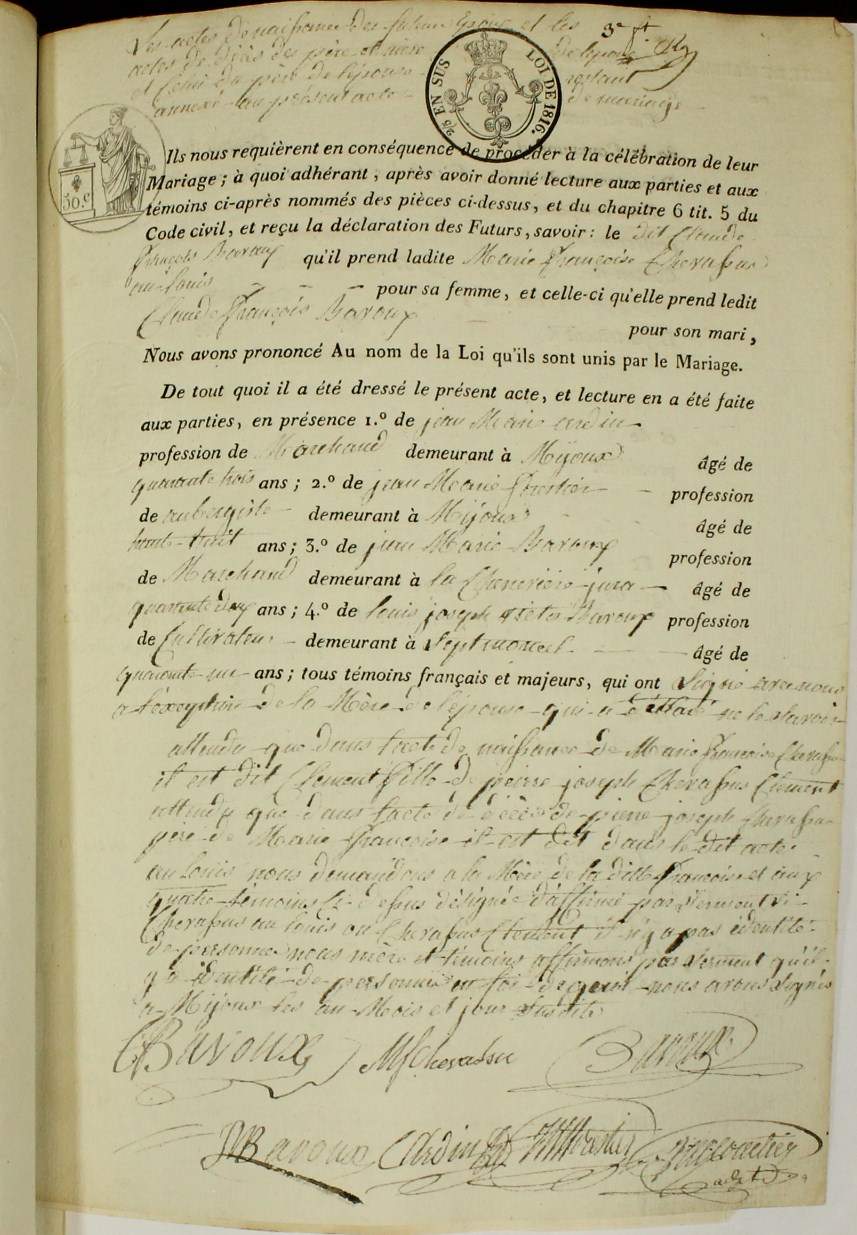 Les actes de naissance des futurs Epoux et les 3e
actes de décès des père et mère de l'épouse
et celui du père de l'épouse restant
annexé au présent acte de mariage
2/5 EN SUS LOI DE 1816.
30.c
Ils nous requièrent en conséquence de procéder à la célébration de leur
Mariage; à quoi adhérant, après avoir donné lecture aux parties et aux
témoins ci-après nommés des pièces ci-dessus, et du chapitre 6 tit. 5 du
Code civil, et reçu la déclaration des Futurs, savoir: le dit Claude
François Bavoux qu'il prend ladite Marie Françoise Chevassus
au-louis pour sa femme, et celle-ci qu'elle prend ledit
Claude François Bavoux pour son mari,
Nous avons prononcé Au nom de la Loi qu'ils sont unis par le Mariage.
De tout quoi il a été dressé le présent acte, et lecture en a été faite
aux parties, en présence 1.º de jean Marie ardin
profession de Marchand demeurant à Mijoux âgé de
quarante trois ans; 2.º de jean Marie profession
de aubergiste demeurant à Mijoux âgé de
trente-huit ans; 3.º de jean Marie Bavoux profession
de Marchand demeurant à la jura âgé de
quarante deux ans; 4.º de louis joseph Bavoux profession
de Cultivateur demeurant à Septmoncel âgé de
quarante-un ans; tous témoins français et majeurs, qui ont signé avec nous
a l'exception de la Mère de l'épouse qui a déclaré ne le savoir
attendu que dans l'acte de naissance de Marie Françoise Chevassus
il est dit Clement fille de pierre joseph Chevassus Clement
attendu que dans l'acte de décès de pierre joseph Chevassus
père de Marie Françoise il est dit dans le dit acte
au louis nous demandons a la Mère de la ditte Françoise et aux
quatre témoins ci-dessus désignés d'affirmé par serment si
Chevassus au louis ou Chevassus Clement il n'y a pas identité
de personnes nous mère et témoins affirmons par serment qu'il
y a identité de personnes en foi de quoi nous avons signés
a Mijoux les an Mois et jour susdits
CBavoux MfChevassu Bavoux
Bavoux Ardin